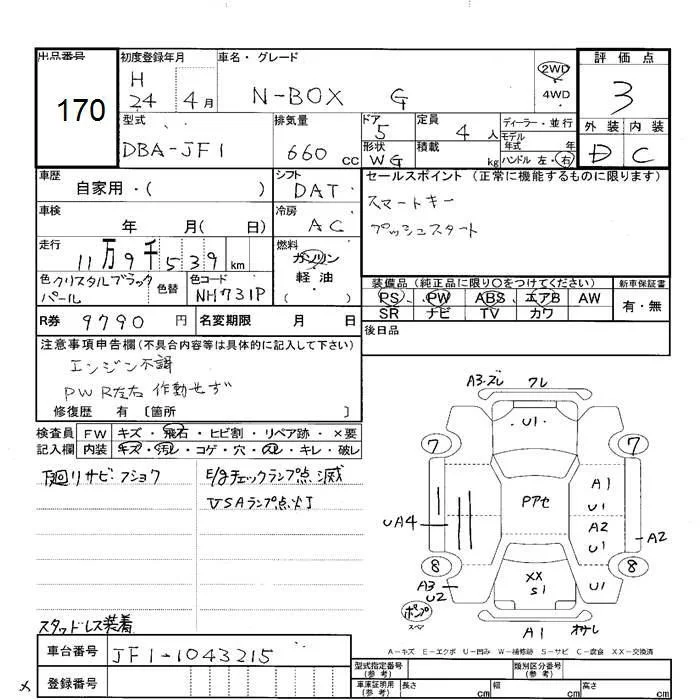 出品番号
170
初度登録年月
H
24 4月
車名・グレード
N-BOX G
2WD
4WD
評価点
3
外装 内装
D C
型式
DBA-JF1
排気量
660 cc
ドア
5
形状
WG
定員
4 人
積載
kg
ディーラー・並行
モデル
年式 年
ハンドル 左・右
車歴
自家用・( )
シフト
DAT
セールスポイント (正常に機能するものに限ります)
スマートキー
プッシュスタート
車検
年 月( 日)
冷房
AC
走行
11万9千539 km
燃料
ガソリン
軽油
・( )
色 クリスタルブラック
パール
色替
色コード
NH731P
装備品 (純正品に限り○をつけてください)
新車保証書
PS PW ABS エアB AW
有・無
SR ナビ TV カワ
R券 9790 円
名変期限 月 日
後日品
注意事項申告欄 (不具合内容等は具体的に記入して下さい)
エンジン不調
PW R左右 作動せず
修復歴 有 〔箇所 〕
検査員 FW キズ・飛石・ヒビ割・リペア跡・×要
記入欄 内装 キズ・汚レ・コゲ・穴・スレ・キレ・破レ
下廻りサビ・フショク
E/gチェックランプ点滅
VSAランプ点灯
スタッドレス装着
A3・ズレ
ワレ
U1
7
7
A1
U1
Pアセ
UA4
A2
U1
A2
8
8
A3
U2
XX
S1
U1
ポンプ
スペア
A1
A-キズ E-エクボ U-凹み W-補修跡 S-サビ C-腐食 XX-交換済
車台番号
JF1-1043215
登録番号
型式指定番号
(参考)
類別区分番号
(参考)
車庫証明用
(参考)
長さ cm
幅 cm
高さ cm